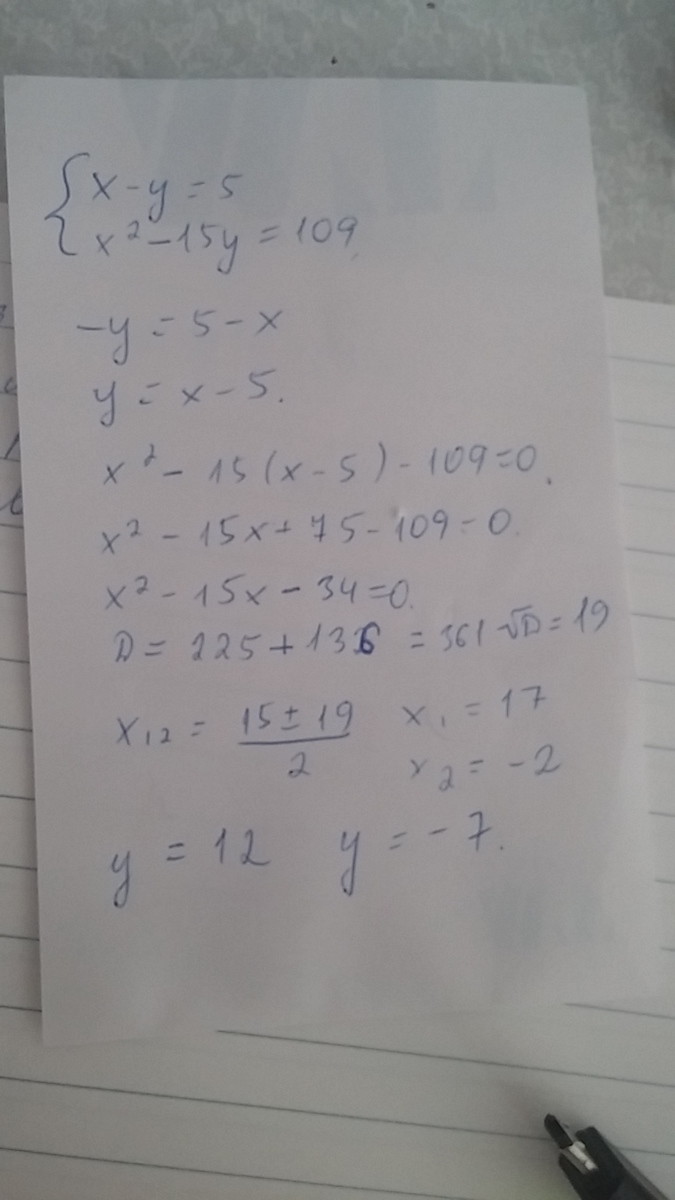 { x - y = 5
x² - 15y = 109
-y = 5 - x
y = x - 5.
x² - 15(x - 5) - 109 = 0.
x² - 15x + 75 - 109 = 0.
x² - 15x - 34 = 0.
D = 225 + 136 = 361 √D = 19
x₁₂ = (15 ± 19)/2 x₁ = 17
x₂ = -2
y = 12 y = -7.